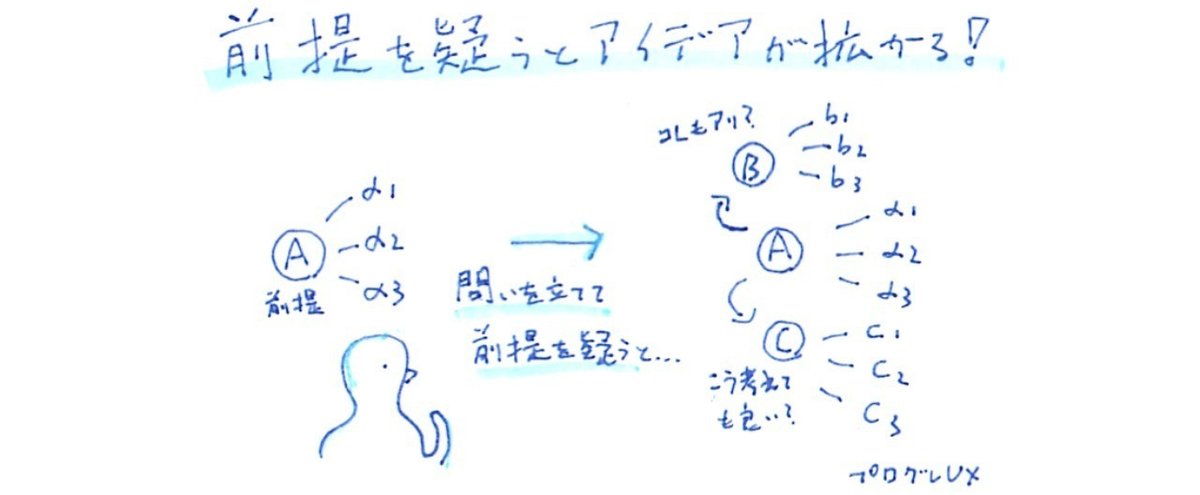 前提を疑うとアイデアが拡がる!
A
α1
α2
α3
前提
問いを立てて
前提を疑うと...
コレもアリ?
B
b1
b2
b3
A
α1
α2
α3
C
c1
c2
c3
こう考えて
も良い?
プログレUX